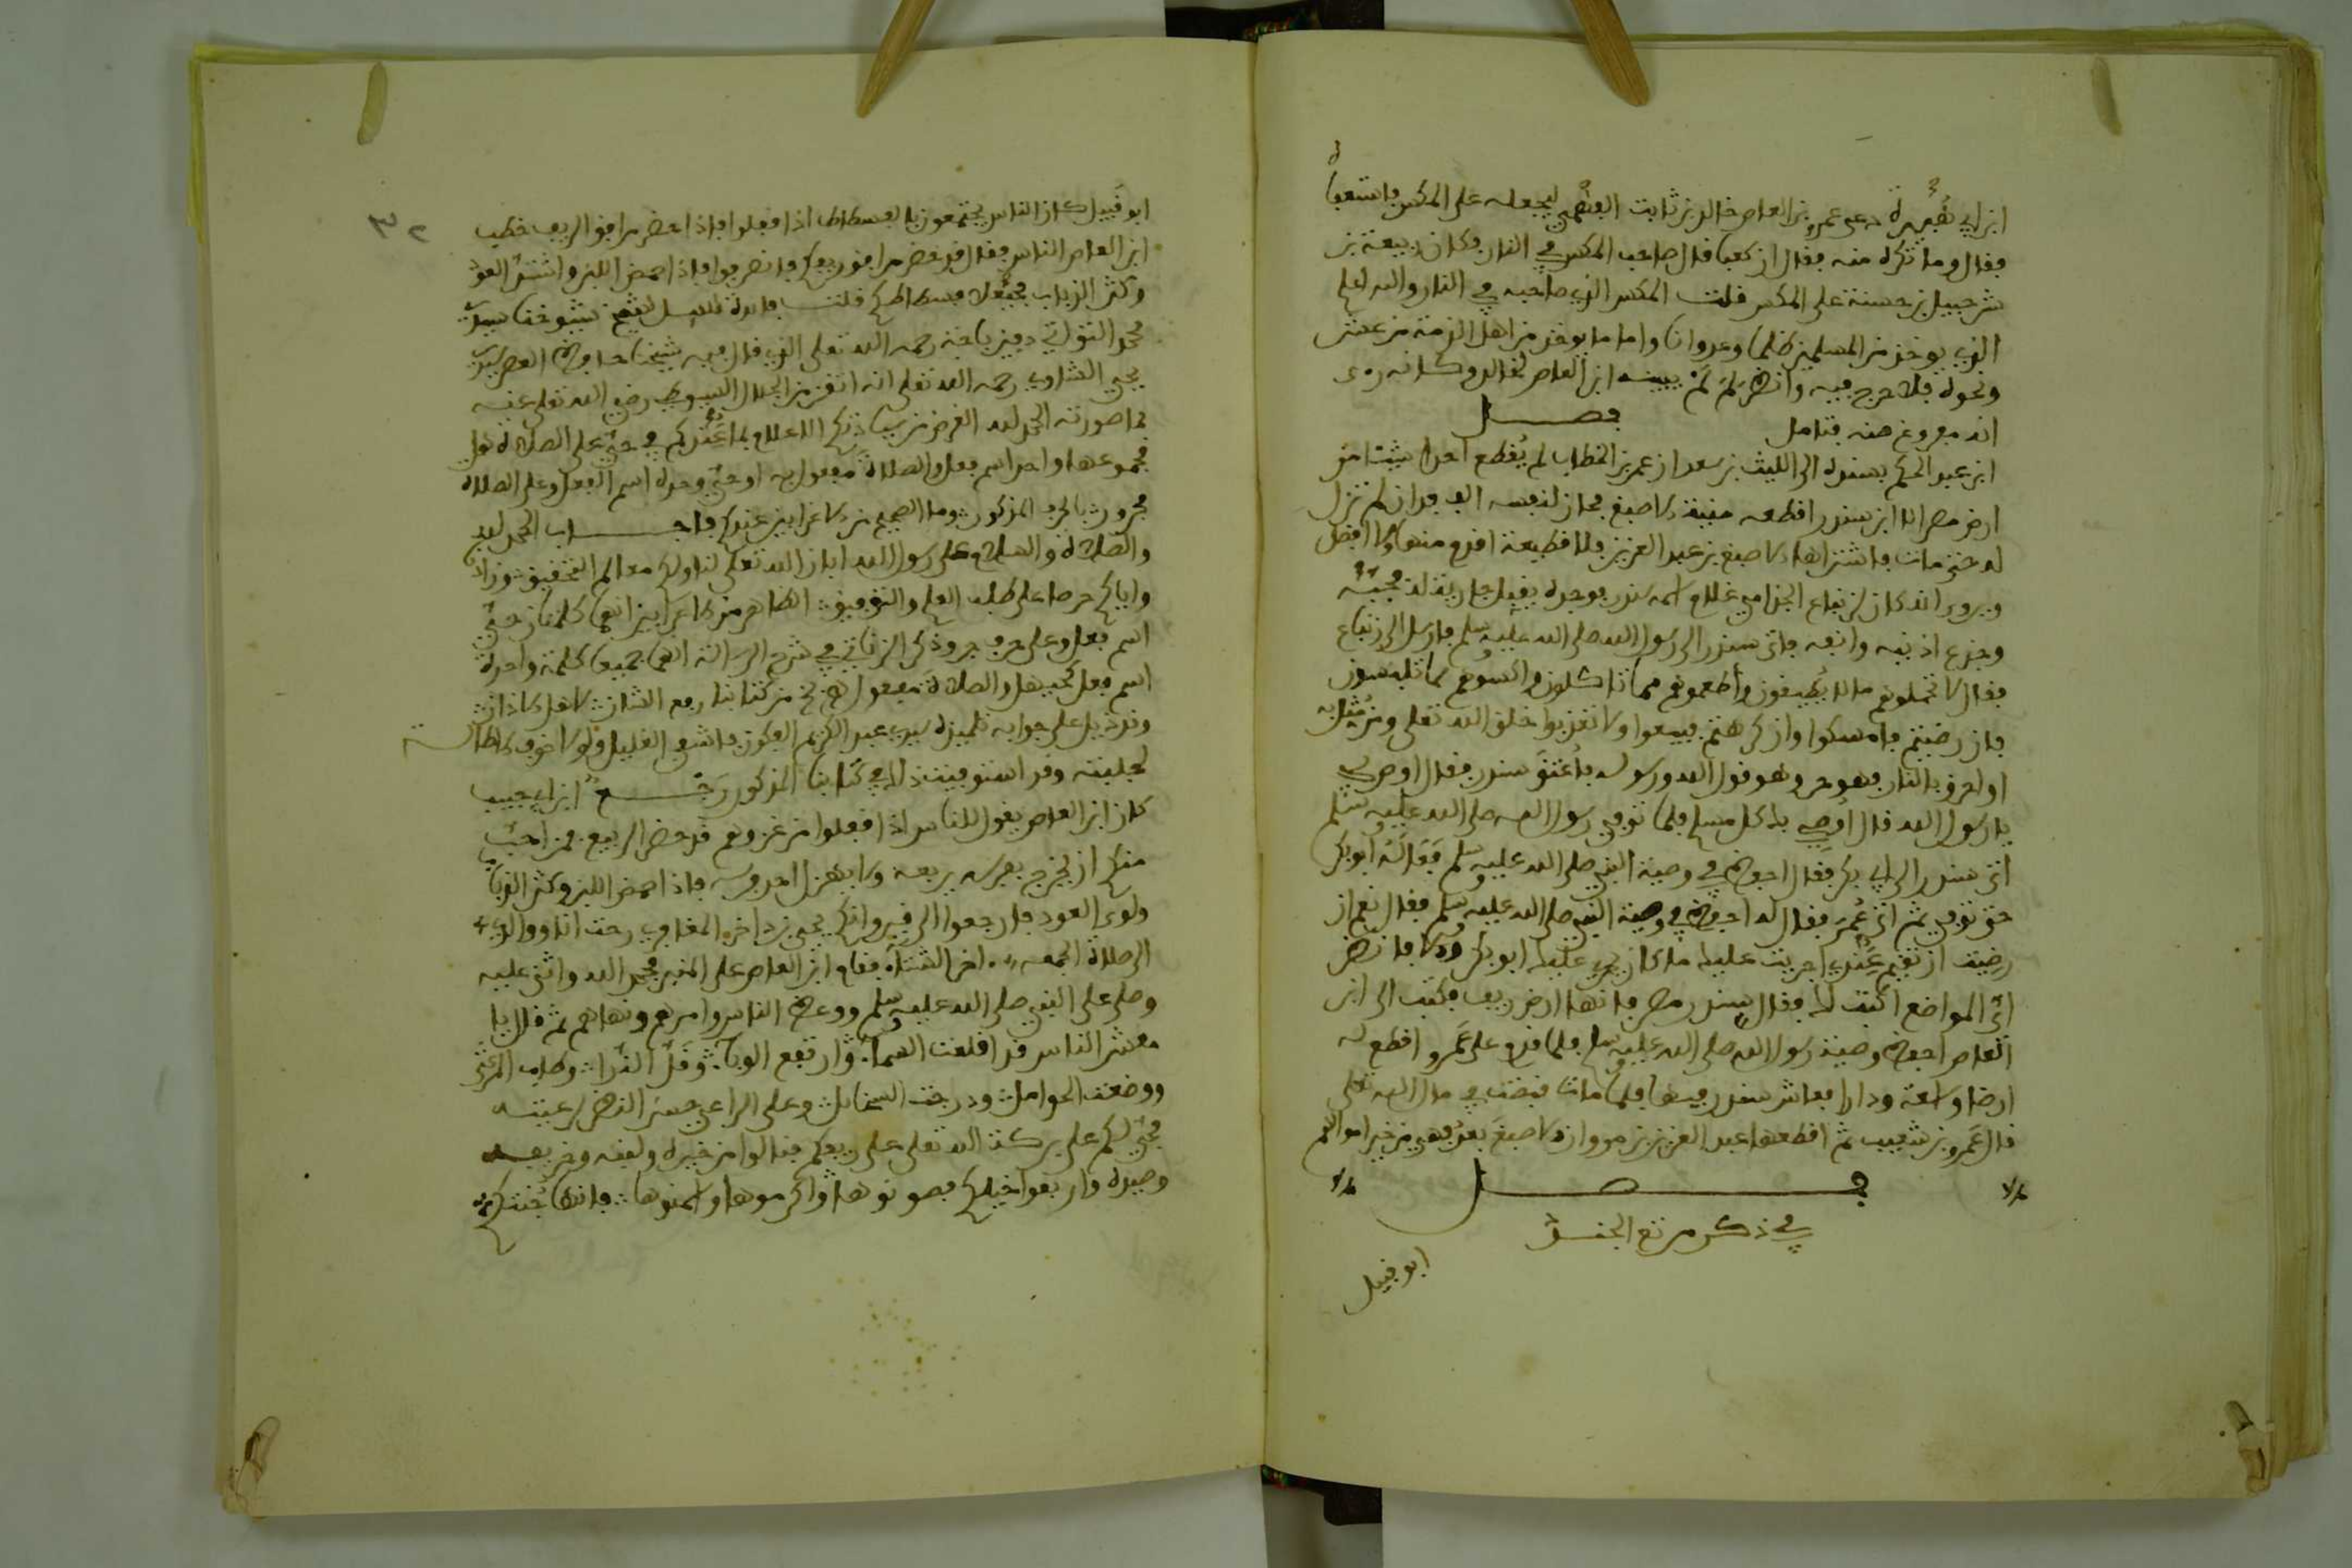 ابن ابي هبيرة دعى عمرو بن العاص خالد بن ثابت الفهمي ليجعله على المكس فاستعفاه
فقال وما تكره منه فقال ان كعبا قال صاحب المكس في النار وكان ربيعة بن
شرحبيل بن حسنة على المكس قلت المكس الذي صاحبه في النار والله اعلم
الذي يوخذ من المسلمين ظلما وعدوانا واما ما يوخذ من اهل الذمة من عشر
ونحوه فلا حرج فيه وانظر لم لم يبينه ابن العاص لخالد وكانه رءى
انه مفروغ منه فتامل فصل
ابن عبد الحكم بسنده الى الليث بن سعد ان عمر بن الخطاب لم يقطع احدا شيئا من
ارض مصر الا ابن سندر اقطعه منية الاصبغ فحاز لنفسه الف فدان لم تزل
له حتى مات فاشتراها الاصبغ بن عبد العزيز فلا قطيعة اقدم منها ولا افضل
ويروى انه كان لزنباع الجذامي غلام اسمه سندر فوجده يقبل جارية له فجبه
وجدع اذنيه وانفه فاتى سندر الى رسول الله صلى الله عليه وسلم فارسل الى زنباع
فقال لا تحملوهم ما لا يطيقون وأطعموهم مما تاكلون واكسوهم مما تلبسون
فان رضيتم فامسكوا وان كرهتم فبيعوا ولا تعذبوا خلق الله تعلى ومن مثل به
او احرق بالنار فهو حر وهو مولى الله ورسوله فأعتق سندر فقال اوص بي
يا رسول الله قال اوصي بك كل مسلم فلما توفي رسول الله صلى الله عليه وسلم
اتى سندر الى ابي بكر فقال احفظ في وصية النبي صلى الله عليه وسلم فعاله ابو بكر
حتى توفي ثم اتى عمر فقال له احفظ في وصية النبي صلى الله عليه وسلم فقال نعم ان
رضيت ان تقيم عندي اجريت عليك ما كان يجري عليك ابو بكر والا فانظر
اي المواضع اكتب لك فقال سندر مصر فانها ارض ريف فكتب الى ابن
العاص احفظ وصية رسول الله صلى الله عليه وسلم فلما قدم على عمرو اقطع له
ارضا واسعة ودارا فعاش سندر فيها فلما مات قبضت في مال الله تعلى
قال عمرو بن شعيب ثم اقطعها عبد العزيز بن مروان الاصبغ بعد فهي من خير اموالهم
فصل
في ذكر مرتع الجند
ابو قبيل
٣٢
ابو قبيل كان الناس يجتمعون بالفسطاط اذا قفلوا فاذا احضر مرافق الريف خطب
ابن العاص الناس فقال قد حضر مرافق ريفكم فانصرفوا فاذا احمض اللبن واشتد العود
وكثر الذباب فحيهلا فسطاطكم قلت فائدة لشيخ شيوخنا سيدي
محمد التواتي رحمه الله تعلى الذي قال فيه شيخنا حافظ العصر سيدي
يحيى الشاوي رحمه الله تعلى انه اتقن من الجلال السيوطي رضي الله تعلى عنه
ما صورته الحمد لله الغرض من سيادتكم الاعلام بما عندكم في حي على الصلاة هل
مجموعهما واحد اسم فعل والصلاة مفعول به او حي وحده اسم الفعل وعلى الصلاة
مجرور بالحرف المذكور وما الصحيح من الاعرابين عندكم فاجاب الحمد لله
والصلاة والسلام على رسول الله ابان الله تعلى لنا ولكم معالم التحقيق وزادنا
واياكم حرصا على طلب العلم والتوفيق الظاهر من الاعرابين انهما كلمتان حي
اسم فعل وعلى حرف جر وذكر الزناتي في شرح الرسالة انهما جميعا كلمة واحدة
اسم فعل كحيهل والصلاة مفعول من كتابنا رفع الشان
وقد ذيل على جوابه تلميذه سيدي عبد الكريم الفكون فاشفى الغليل ولولا خوف الاطالة
لجلبته وقد استوفيت ذلك في كتابنا المذكور رجع ابن ابي حبيب
كان ابن العاص يقول للناس اذا قفلوا من غزوهم قد حضر الربيع فمن احب
منكم ان يخرج بفرسه يربعه ولا يهزل احد فرسه فاذا حمض اللبن وكثر الذباب
ولوى العود فارجعوا الى قيروانكم يحيى بن داخر المغافري رحت انا ووالدي
الى صلاة الجمعة اخر الشتاء فقام ابن العاص على المنبر فحمد الله واثنى عليه
وصلى على النبي صلى الله عليه وسلم ووعظ الناس وامرهم ونهاهم ثم قال يا
معشر الناس قد اقلعت السماء وارتفع الوباء وقل الندا وطاب المرعى
ووضعت الحوامل ودرجت السخائل وعلى الراعي حسن النظر لرعيته
فحي لكم على بركة الله تعلى على ريفكم فنالوا من خيره ولبنه وخريفه
وصيده واربعوا خيلكم وصونوها واكرموها واسمنوها فانها جنتكم